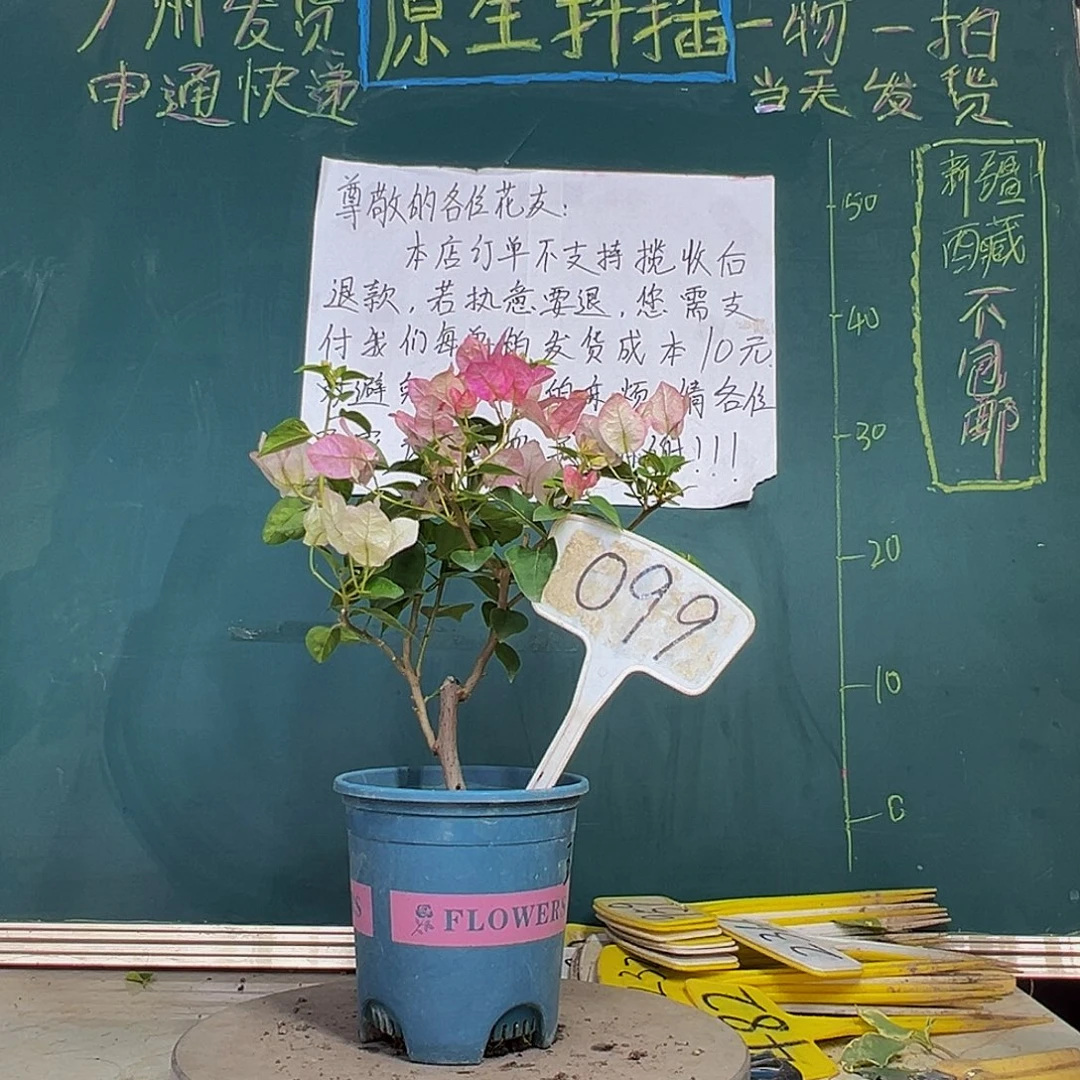 广州发货
申通快递
原生扦插
一物一拍
当天发货
尊敬的各位花友:
本店订单不支持揽收后
退款,若执意要退,您需支
付我们每单的发货成本10元
避 的麻烦 请各位
!!!
新疆
西藏
不
包
邮
50
40
30
20
10
0
099
FLOWERS
S